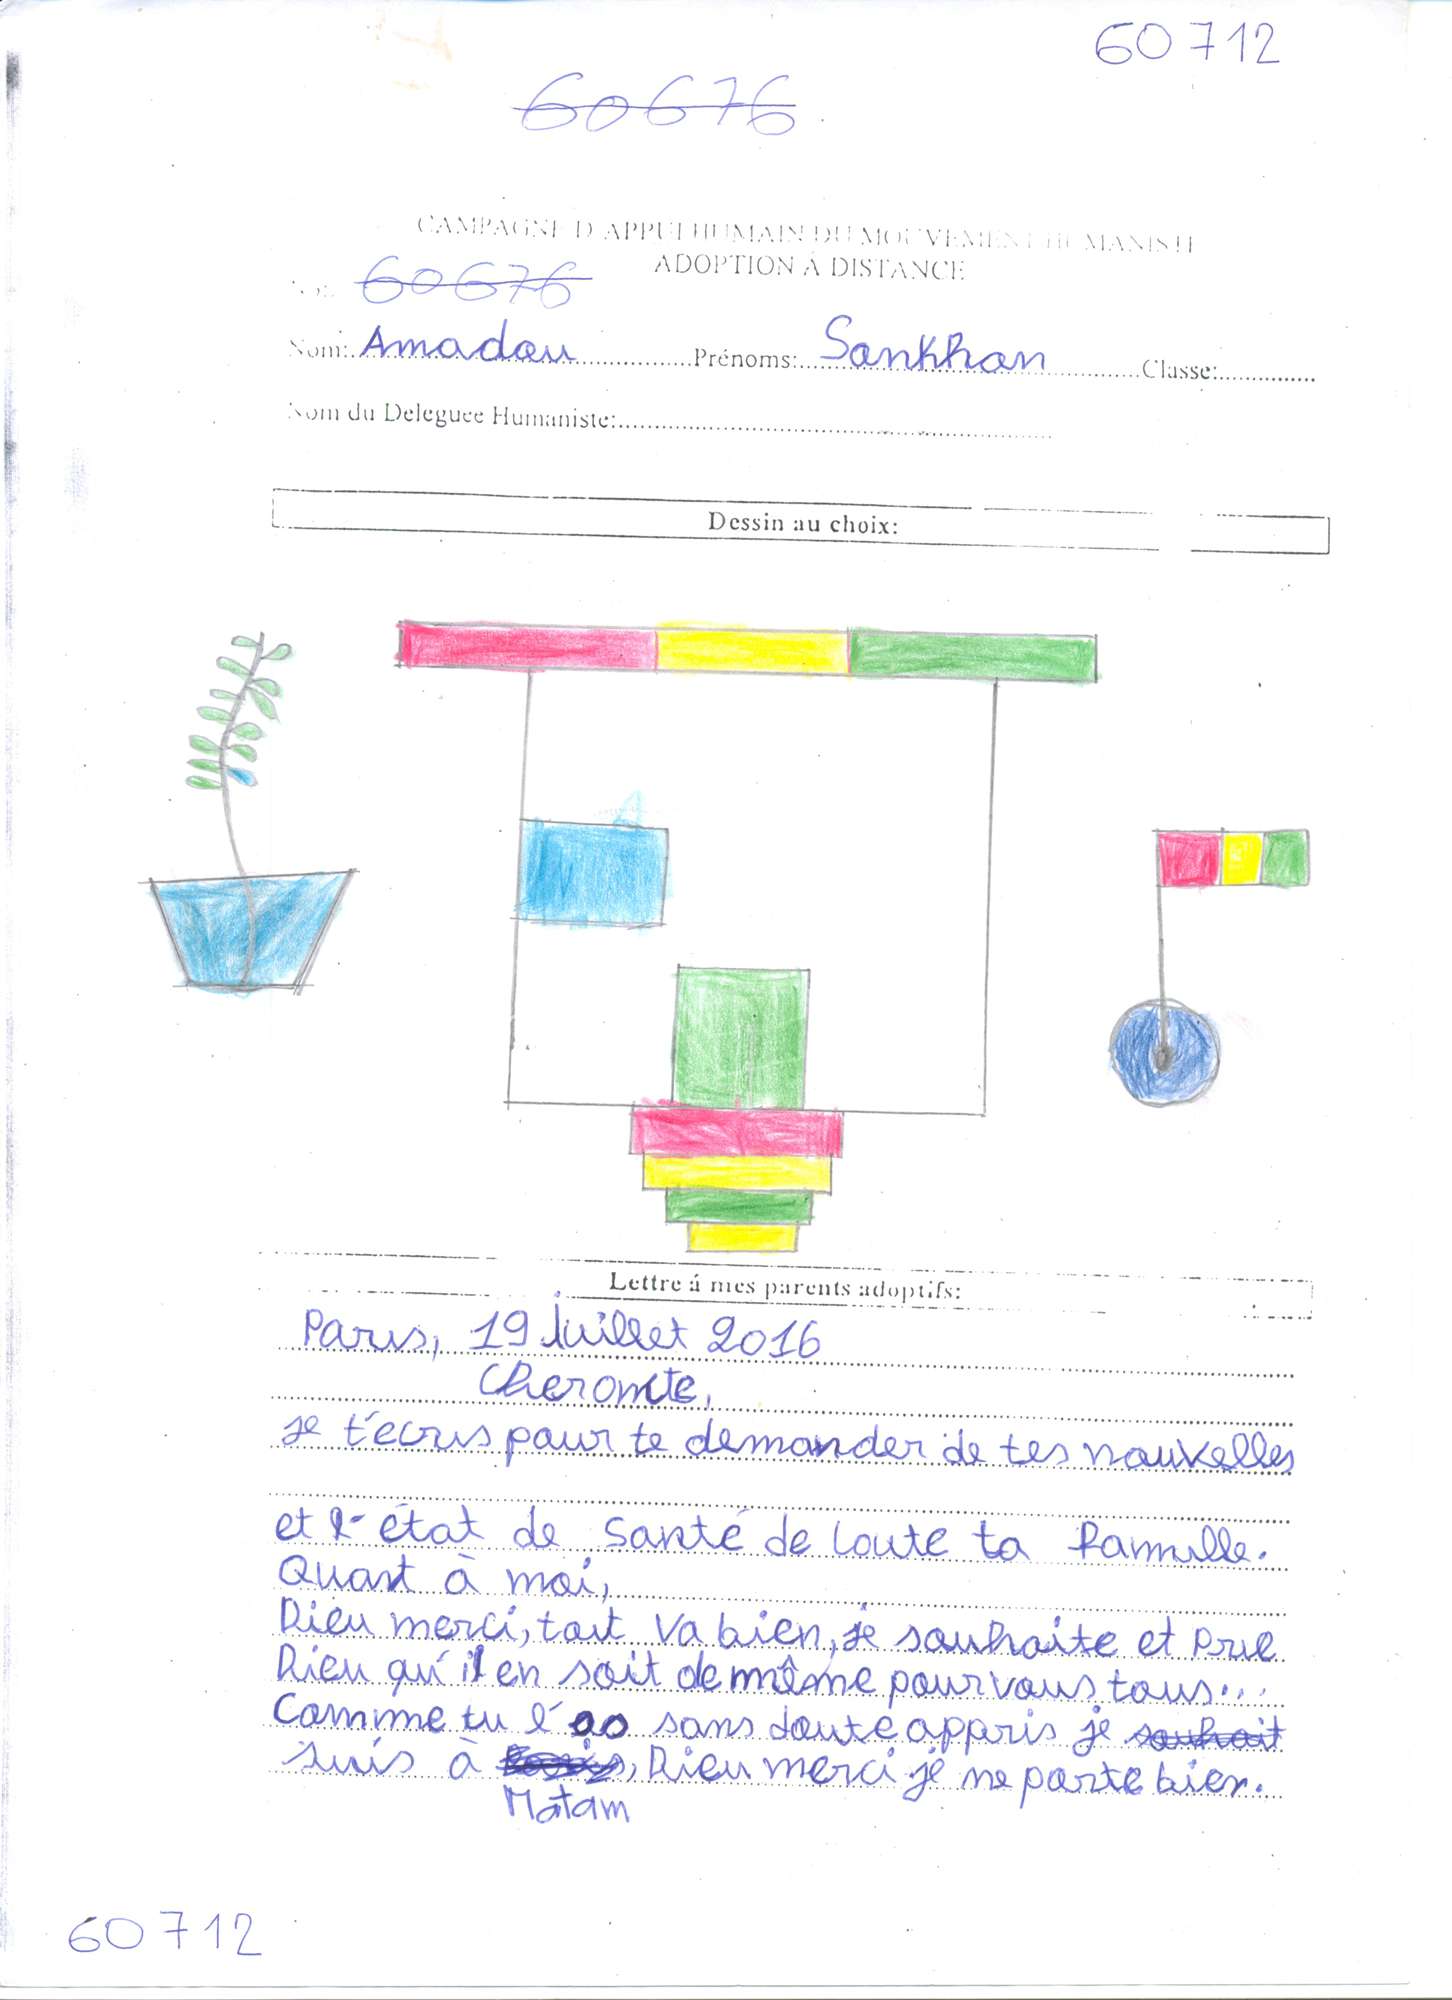 60712
60676
CAMPAGNE D'APPUI HUMAIN DU MOUVEMENT HUMANISTE
ADOPTION À DISTANCE
No: 60676
Nom: Amadou Prénoms: Sankhan Classe:
Nom du Deleguee Humaniste:
Dessin au choix:
Lettre á mes parents adoptifs:
Paris, 19 Juillet 2016
Cheromte,
je t'ecris pour te demander de tes nouvelles
et l'état de santé de toute ta famille.
Quant à moi,
Dieu merci, tout va bien, je souhaite et prie
Dieu qu'il en soit de même pour vous tous...
Comme tu l'ao sans doute appris je souhait
suis à Dieu merci je me porte bien.
Matam
60712